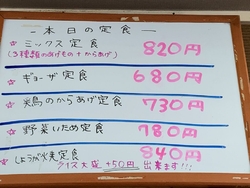 －本日の定食－
☆ミックス定食 820円
(3種類のあげもの+からあげ)
☆ギョーザ定食 680円
☆鶏のからあげ定食 730円
☆野菜いため定食 780円
☆しょうが焼定食 840円
ライス大盛+50円出来ます!!!